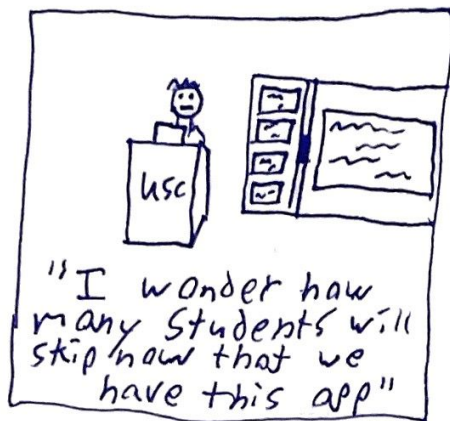 USC
"I wonder how
many students will
skip now that we
have this app"